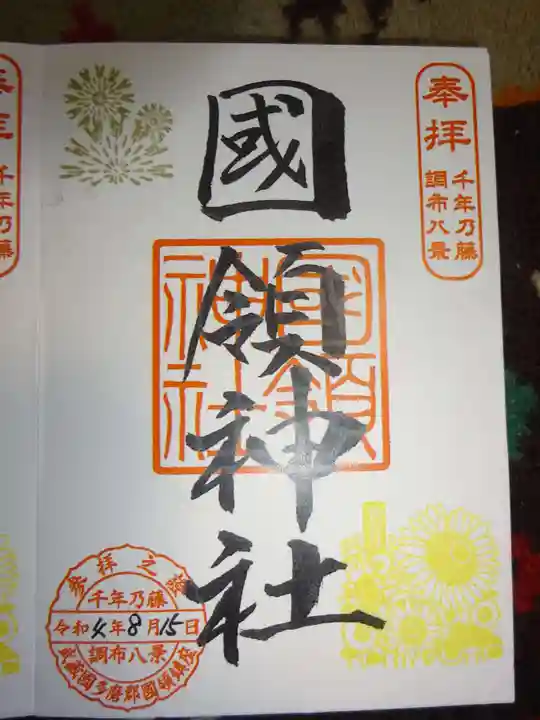 奉拝
千年乃藤
調布八景
國領神社
國領
神社
参拝之證
千年乃藤
令和4年8月15日
調布八景
武蔵國多磨郡國領鎮座
千年乃藤